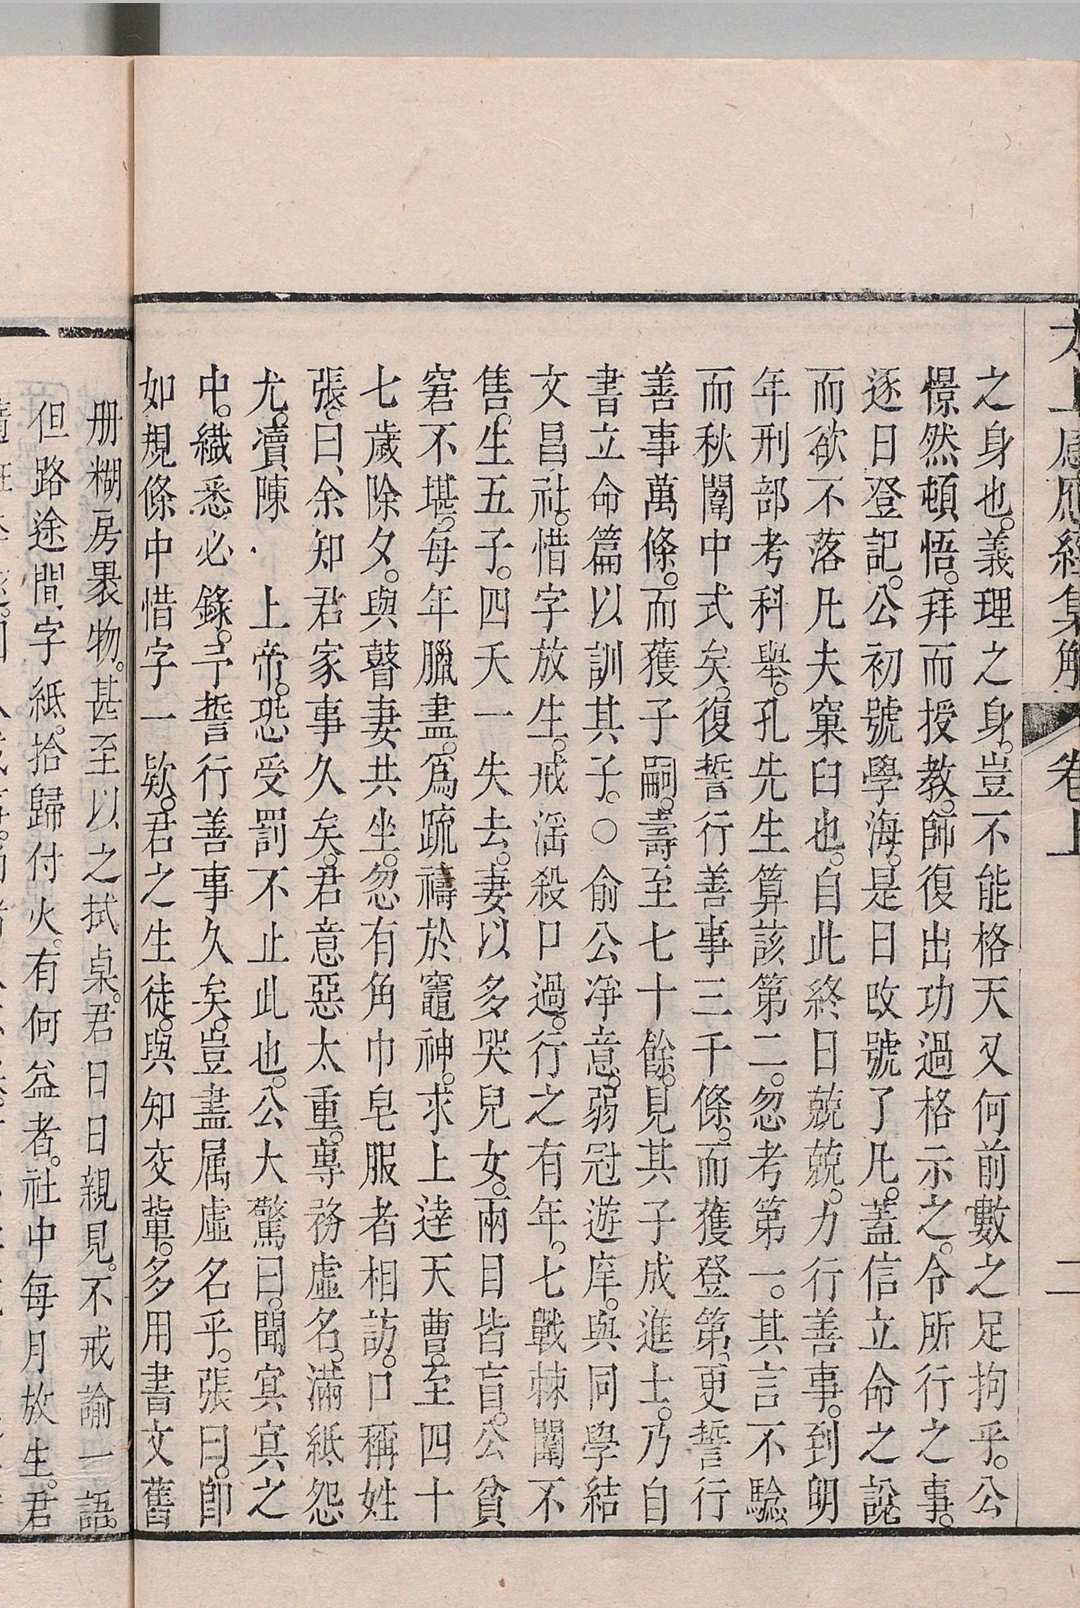 太上感應經集解 卷上 二
之身也。義理之身。豈不能格天又何前數之足拘乎。公
憬然頓悟。拜而授教。師復出功過格示之。令所行之事。
逐日登記。公初號學海。是日改號了凡。蓋信立命之說
而欲不落凡夫窠臼也。自此終日兢兢。力行善事。到明
年刑部考科舉。孔先生算該第二。忽考第一。其言不驗。
而秋闈中式矣。復誓行善事三千條。而獲登第。更誓行
善事萬條。而獲子嗣。壽至七十餘。見其子成進士。乃自
書立命篇以訓其子。○俞公淨意。弱冠遊庠。與同學結
文昌社。惜字放生。戒淫殺口過。行之有年。七戰棘闈不
售。生五子。四夭一失去。妻以多哭兒女。兩目皆盲。公貧
窘不堪。每年臘盡。爲疏禱於竈神。求上達天曹。至四十
七歲除夕。與瞽妻共坐。忽有角巾皂服者相訪。口稱姓
張。曰、余知君家事久矣。君意惡太重。專務虛名。滿紙怨
尤。瀆陳 上帝。恐受罰不止此也。公大驚曰。聞冥冥之
中。纖悉必錄。予誓行善事久矣。豈盡属虛名乎。張曰。卽
如規條中惜字一欵。君之生徒。與知交輩。多用書文舊
册糊房褁物。甚至以之拭桌。君日日親見。不戒諭一語。
但路途間、字紙。拾歸付火。有何益者。社中每月放生。君